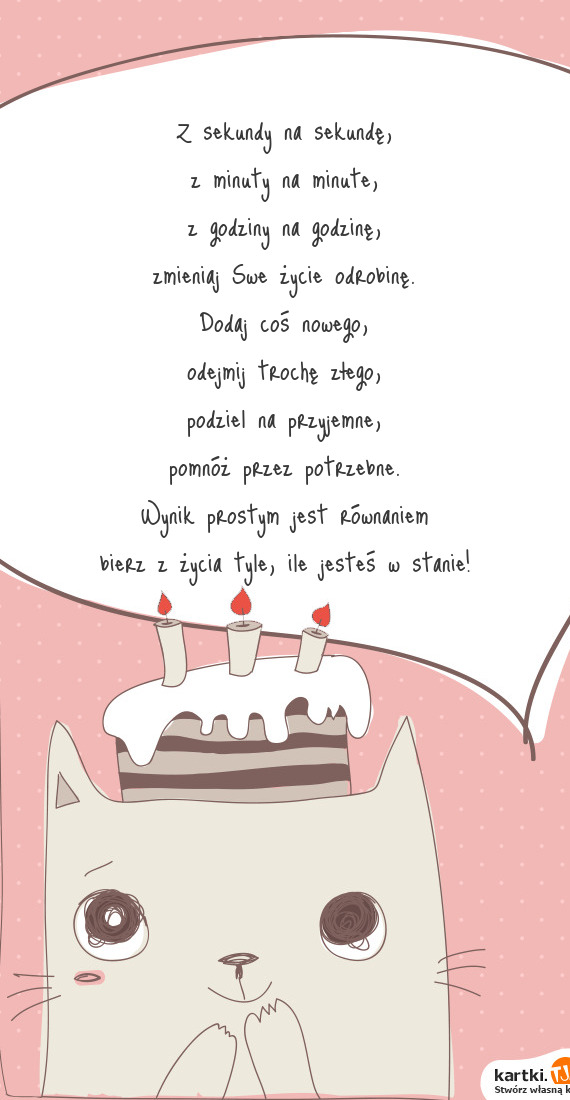 Z sekundy na sekundę,
z minuty na minute,
z godziny na godzinę,
zmieniaj Swe życie odrobinę.
Dodaj coś nowego,
odejmij trochę złego,
podziel na przyjemne,
pomnóż przez potrzebne.
Wynik prostym jest równaniem
bierz z życia tyle, ile jesteś w stanie!
kartki.TJ
Stwórz własną k